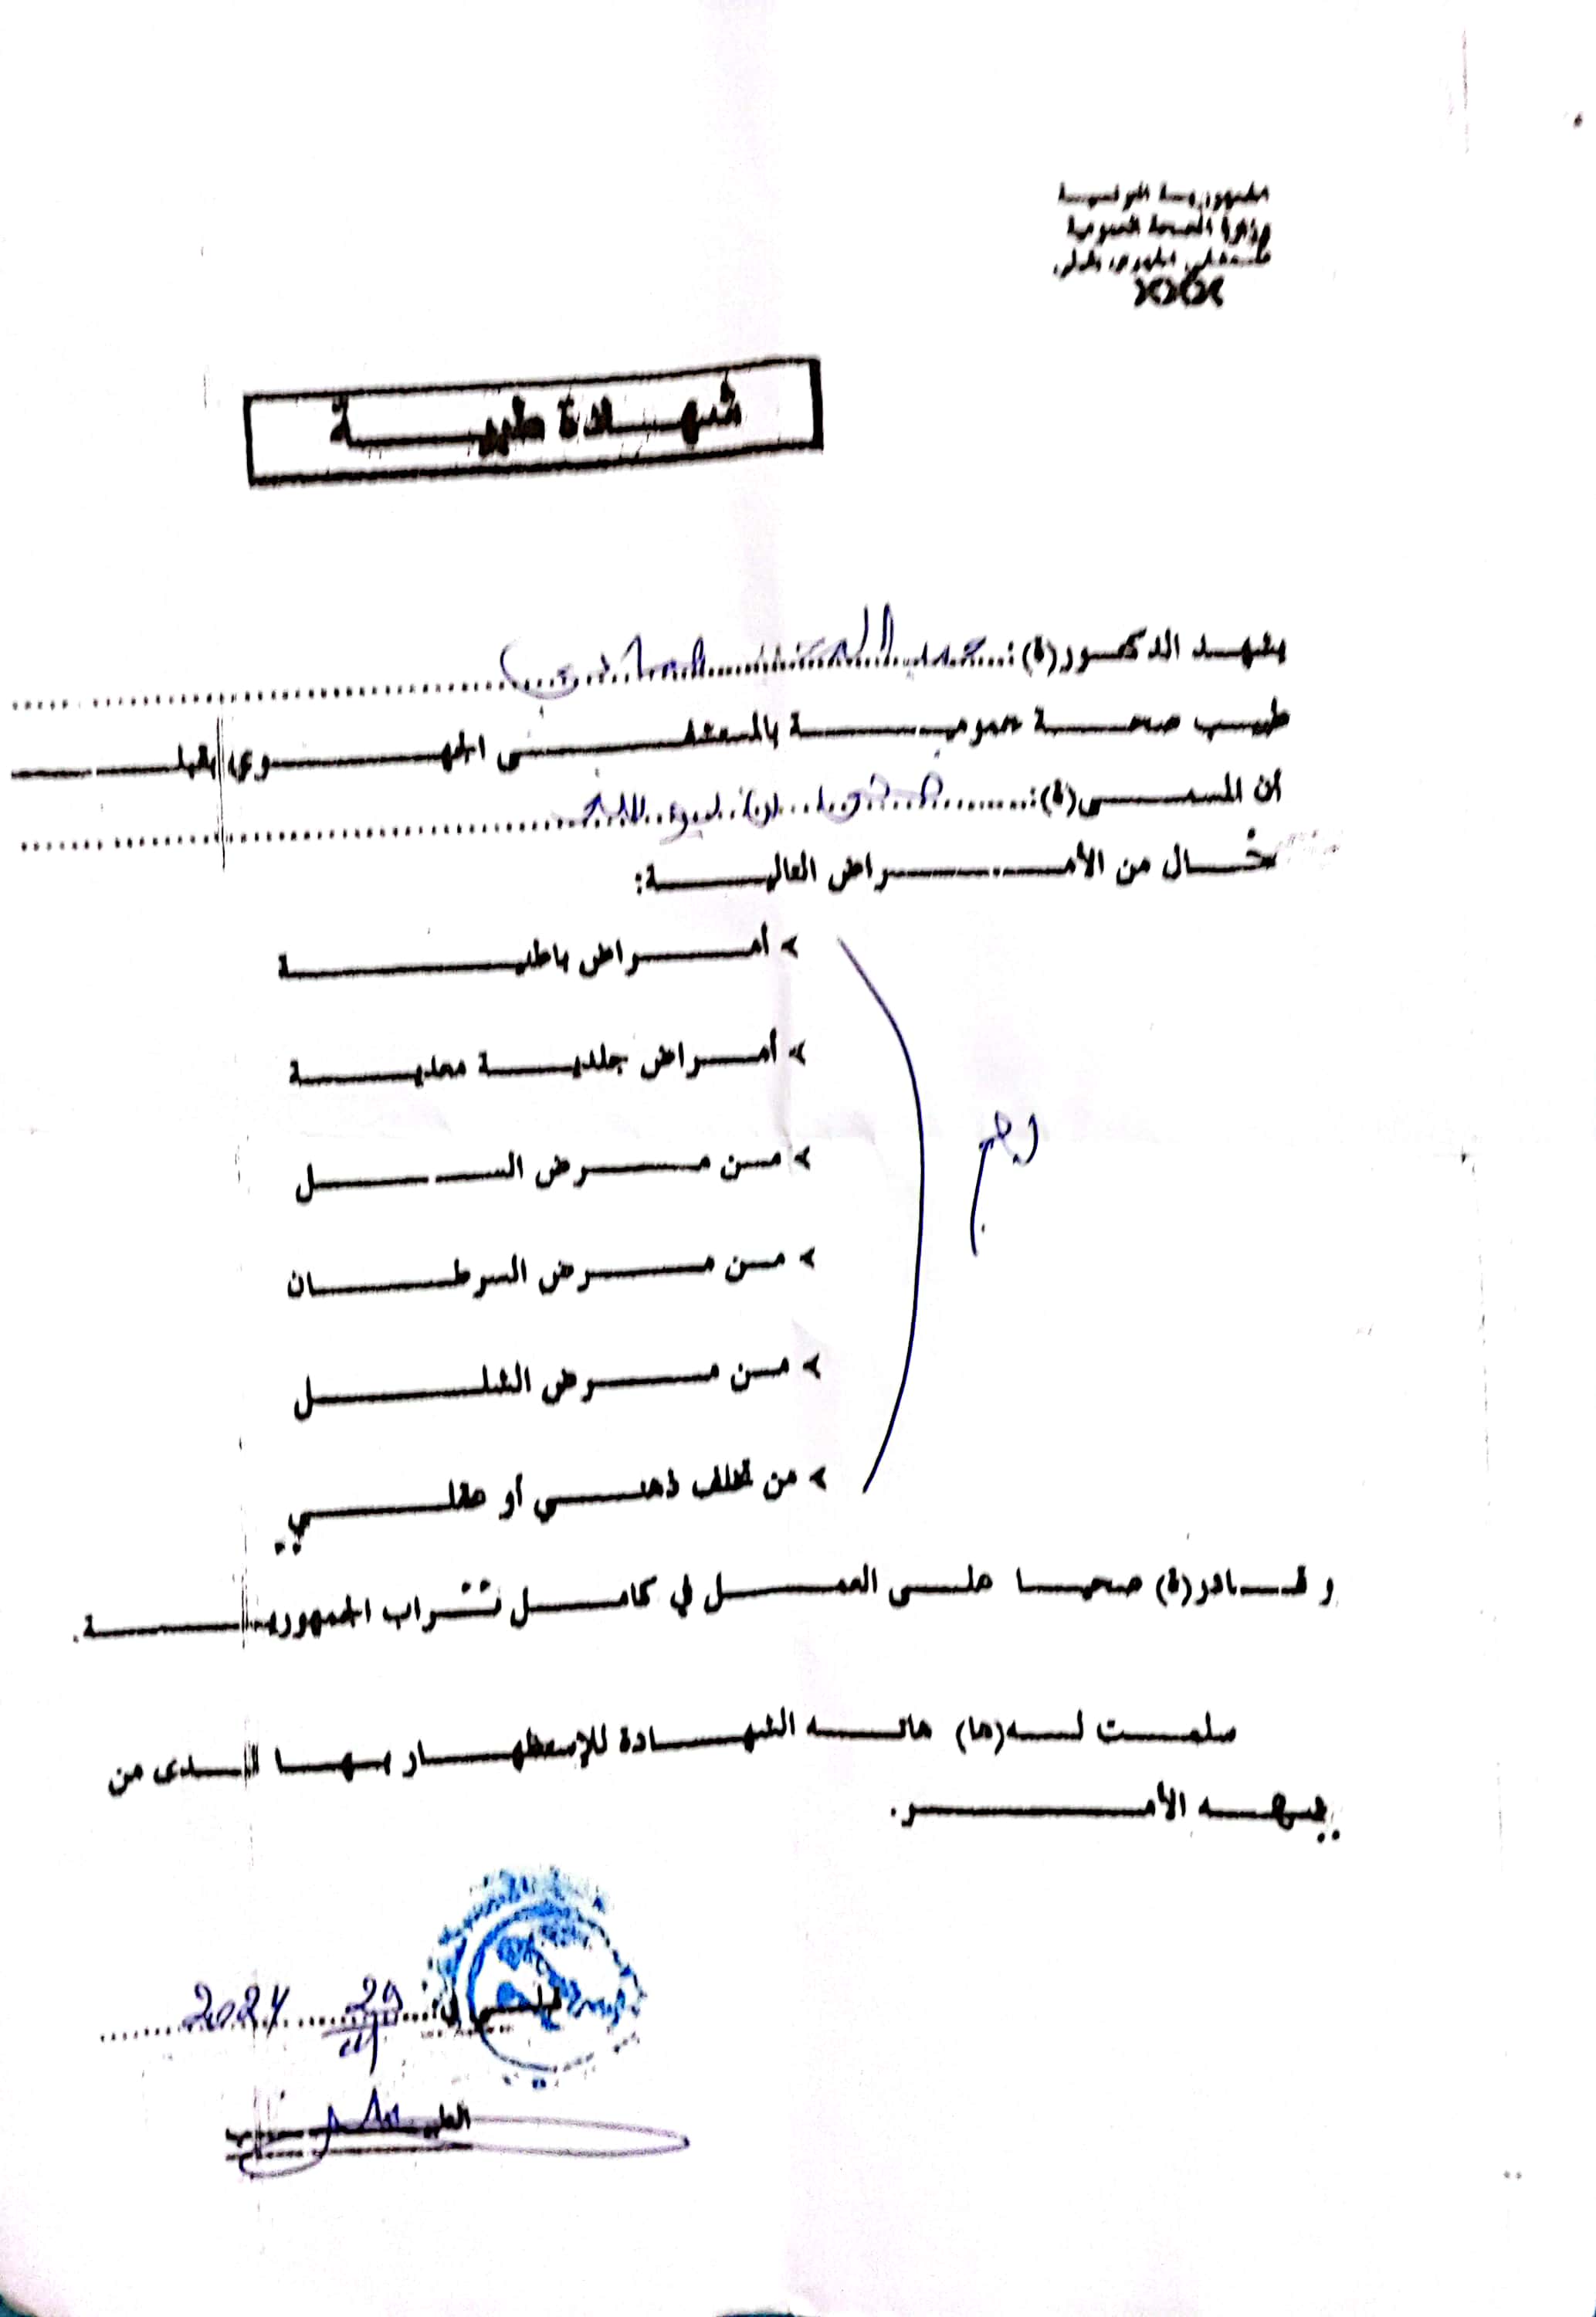 الجمهورية التونسية
وزارة الصحة العمومية
شهادة طبية
يشهد الدكتور(ة): عبد
طبيب صحة عمومية بالمستشفى الجهوي بقبلي
أن المسمى(ة):
خال من الأمراض التالية:
> أمراض باطنية
> أمراض جلدية معدية
> من مرض السل
> من مرض السرطان
> من مرض الشلل
> من تخلف ذهني أو عقلي
و قادر(ة) صحيا على العمل في كامل تراب الجمهورية.
سلمت له(ها) هاته الشهادة للإستظهار بها لدى من
يهمه الأمر.
قبلي في: 29 2024
الطبيب